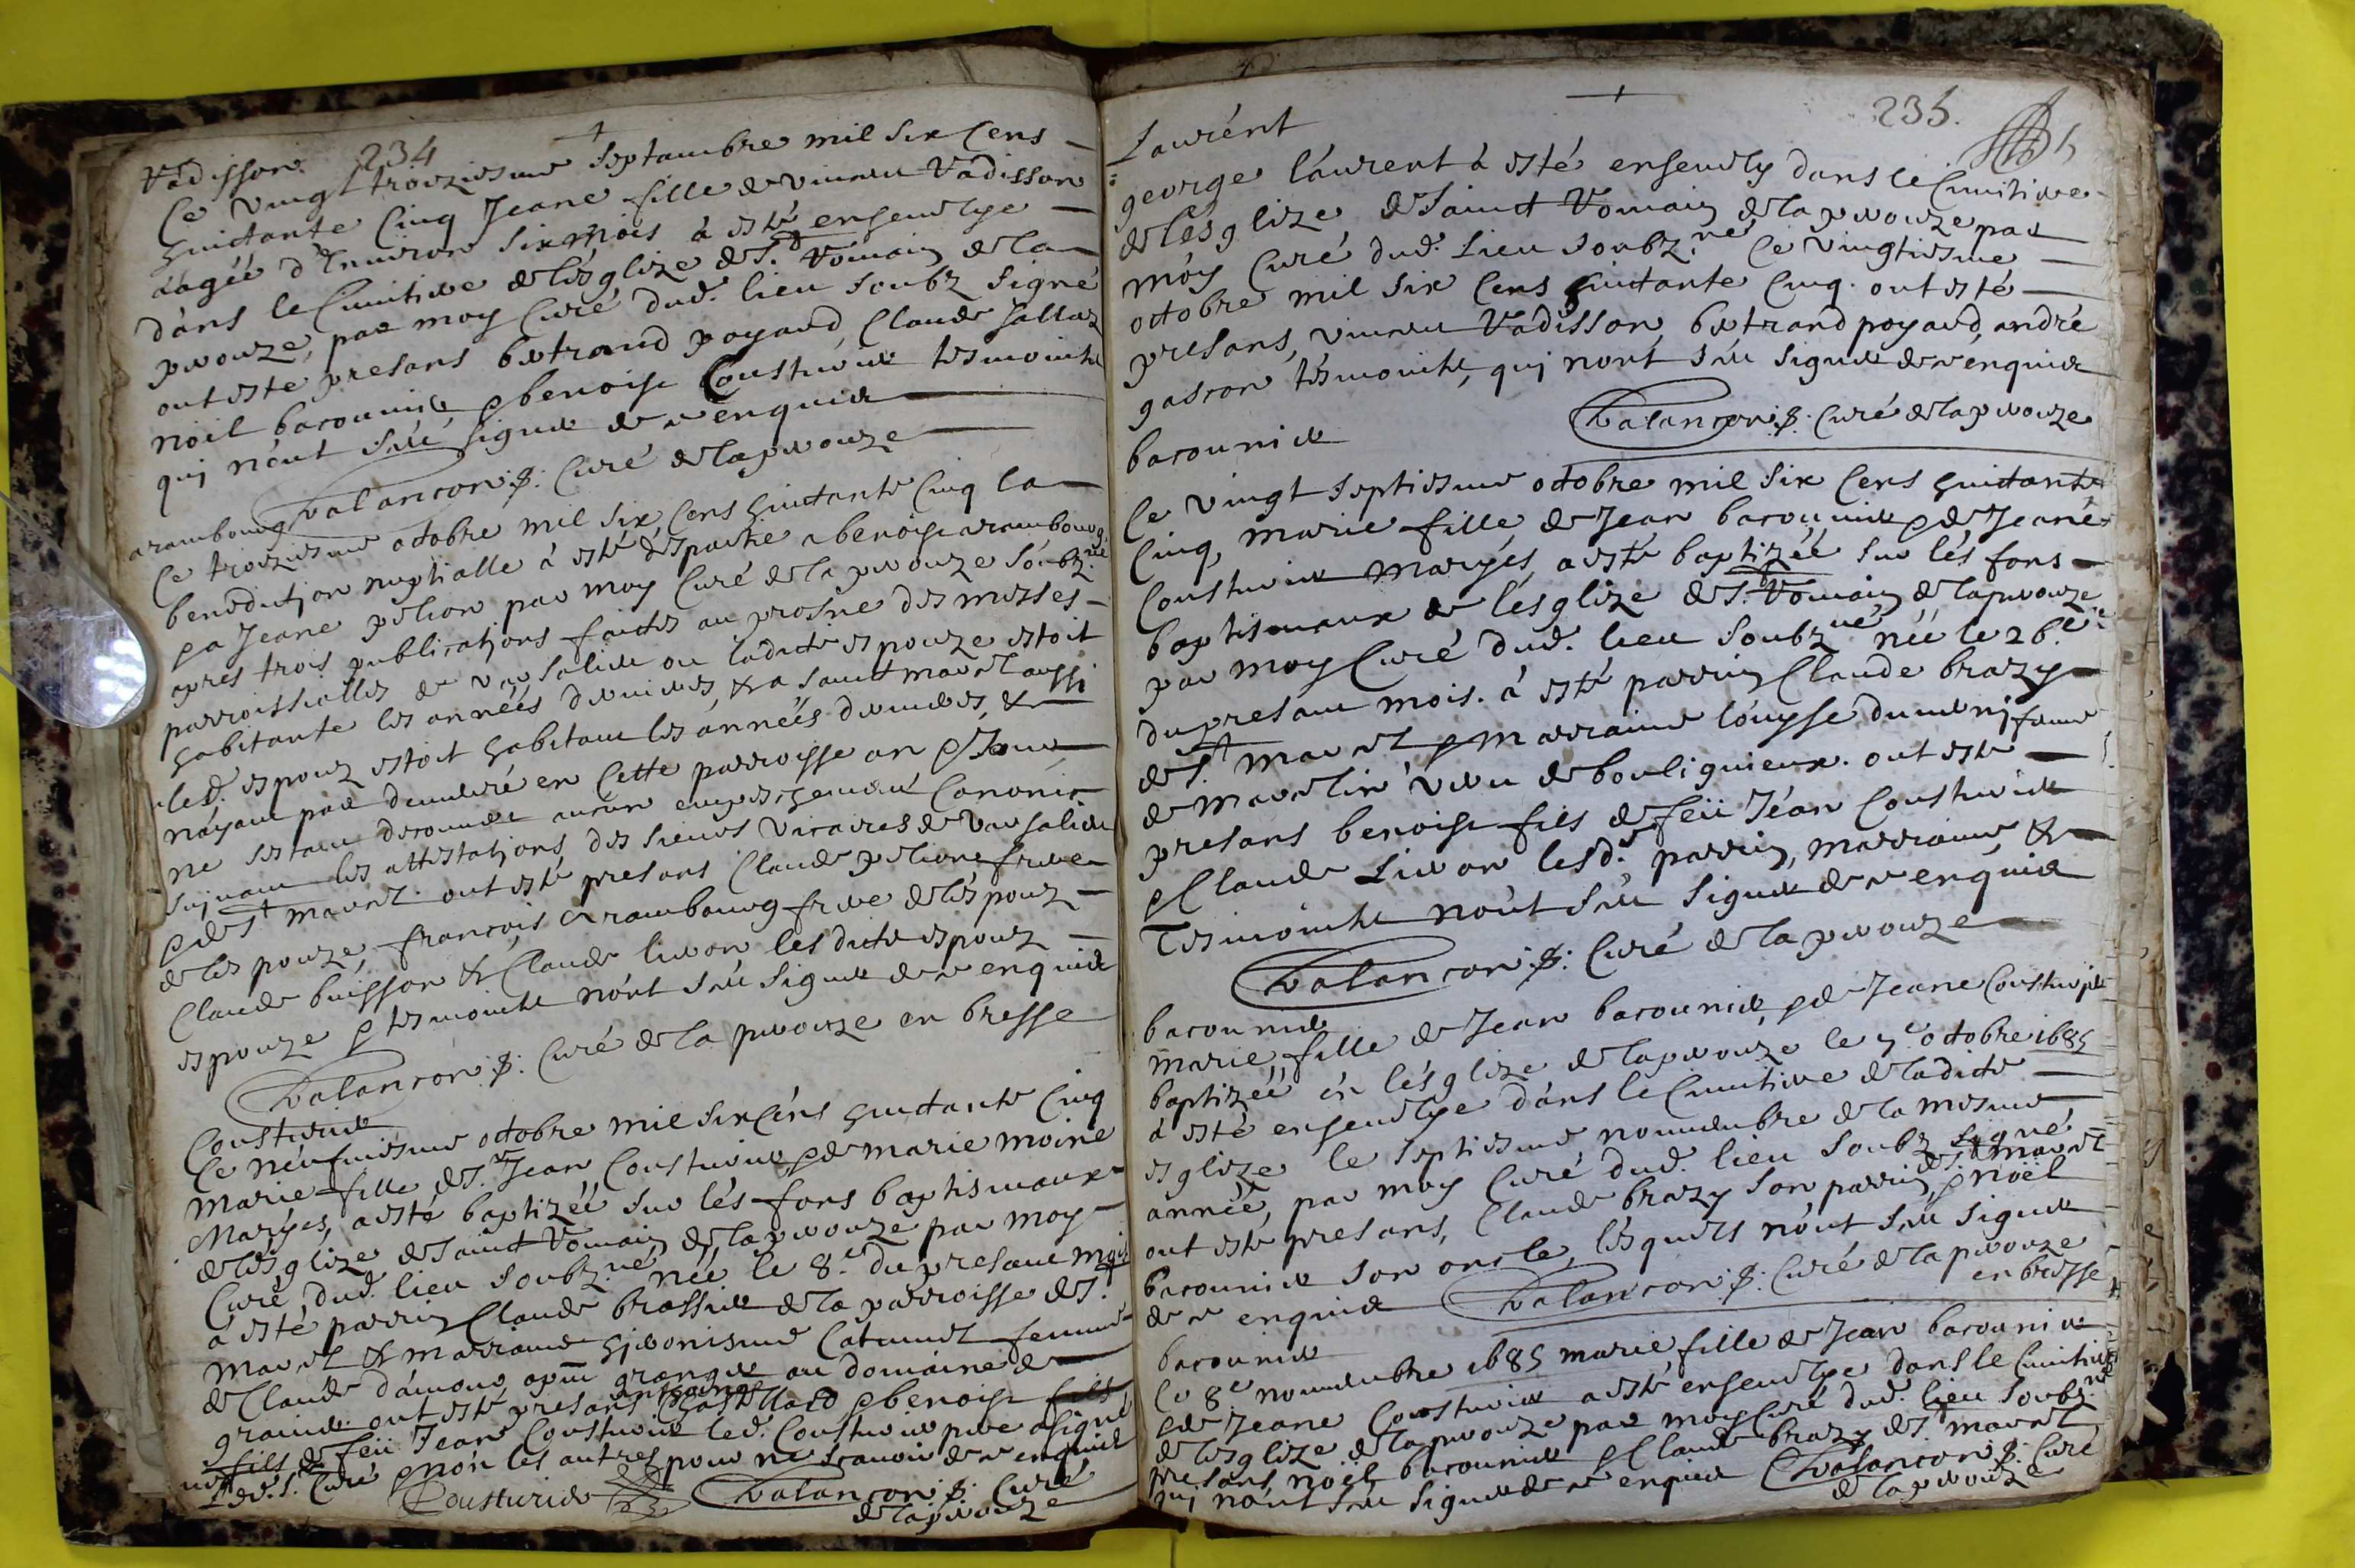 Vadisson. 234
Ce vingt troiziesme septambre mil six cens
huictante cinq Jeane fille de Vadisson
aagée d'environ six mois à esté ensevelye
dans le cimitiere de l'esglize de St. Romain de la
perouze, par moy curé dud. lieu soubz signé
ont esté presans bertrand poyard, Claude
noel bacounier, & benoist Cousturier tesmoints
qui n'ont sceu signer de ce enquier
Valancon p. Curé de la perouze
arambourg
Ce troiziesme octobre mil six cens huictante cinq la
benediction nuptialle à esté despartie a benoist arambourg
& a Jeane pelion par moy Curé de la perouze soubz.né
apres trois publications faictes au prosne des messes
parroissialles de Varsalieu ou ladicte espouze estoit
habitante les années dernieres, & a sainct marcel aussi
led. espouz estoit habitant les années dernieres, &
n'ayant pas demeuré en cette parroisse an & Jour
ne sestant decouvert aucun empeschement canonic
suivant les attestations des sieurs vicaires de Varsalieu
& de St marcel. ont esté presans Claude pelion frere
de l'espouze, francois arambourg frere de l'espouz
Claude buisson & Claude livon les dicts espouz
espouze & tesmoints n'ont sceu signer de ce enquier
Valancon p. Curé de la perouze en bresse
Cousturier
Ce neufviesme octobre mil six cens huictante cinq
marie fille de Sr. Jean Cousturier, & de marie moine
Maryes, a esté baptizée sur les fons baptismaux
de l'esglize de sainct Romain de la perouze par moy
Curé dud. lieu soubz.né née le 8.e du presant mois
à esté parrin Claude brassier de la parroisse de St.
marcel & marraine hieronisme femme
de Claude damour granger au domaine de
ont esté presans & benoist fils
fils de feü Jean Cousturier led. Cousturier pere a signé
Curé & non les autres pour ne scavoir de ce enquier
Cousturier Valancon p. Curé
de la perouze
235.
Laurént
george laurent à esté ensevely dans le Cimitiere
de l'ésglize de sainct Romain de la perouze par
moy Curé dud. lieu soubz.né Ce vingtiesme
octobre mil six cens huictante cinq. ont esté
presans, Vadisson, bertrand poyard, andré
gascon tesmoints, qui n'ont sceu signer de ce enquier
Valancon p. Curé de la perouze
bacounier
Ce vingt septiesme octobre mil six cens huictante
cinq, marie fille de Jean bacounier & de Jeane
Cousturier maryés, a esté baptizée sur lés fons
baptismaux de l'ésglize de St. Romain de la perouze
par moy Curé dud. lieu soubz.né née le 26.e
du presant mois. à esté parrin Claude brazy
de St. marcel & marraine louyse femme
de de bouligneux. ont esté
presans benoist fils de feü Jéan Cousturier
& Claude livon lesd. parrin, marraine &
Tesmoints n'ont sceu signer de ce enquier
Valancon p. Curé de la perouze
bacounier
marie fille de Jean bacounier, & de Jeane Cousturier
baptizéé én l'ésglize de la perouze le octobre 1685
à esté ensevelye dans le Cimitiere de ladicte
esglize le septiesme novembre de la mesme
année, par moy Curé dud. lieu soubz signé
ont esté presans, Claude brazy son parrin de St marcel & noël
bacounier son oncle, lesquels n'ont sceu signer
de ce enquier Valancon p. Curé de la perouze
en bresse
bacounier
le 8.e novembre 1685 marie fille de Jean bacounier
& de Jeane Cousturier a esté ensevelye dans le Cimitiere
de l'esglize de la perouze par moy Curé dud. lieu soubz.né
presans noël bacounier & Claude brazy de St. marcel
qui n'ont sceu signer de ce enquier Valancon p. Curé
de la perouze